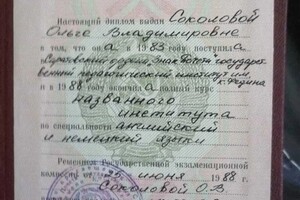 Настоящий диплом выдан Соколовой
Ольге Владимировне
в том, что она в 1983 году поступила
в Саратовский ордена „Знак Почёта" государст
венный педагогический институт им.
К. Федина
и в 1988 году окончила полный курс
названного
института
по специальности английский
и немецкий языки
Решением Государственной экзаменационной
комиссии от июня 1988 г.
Соколовой О.В.